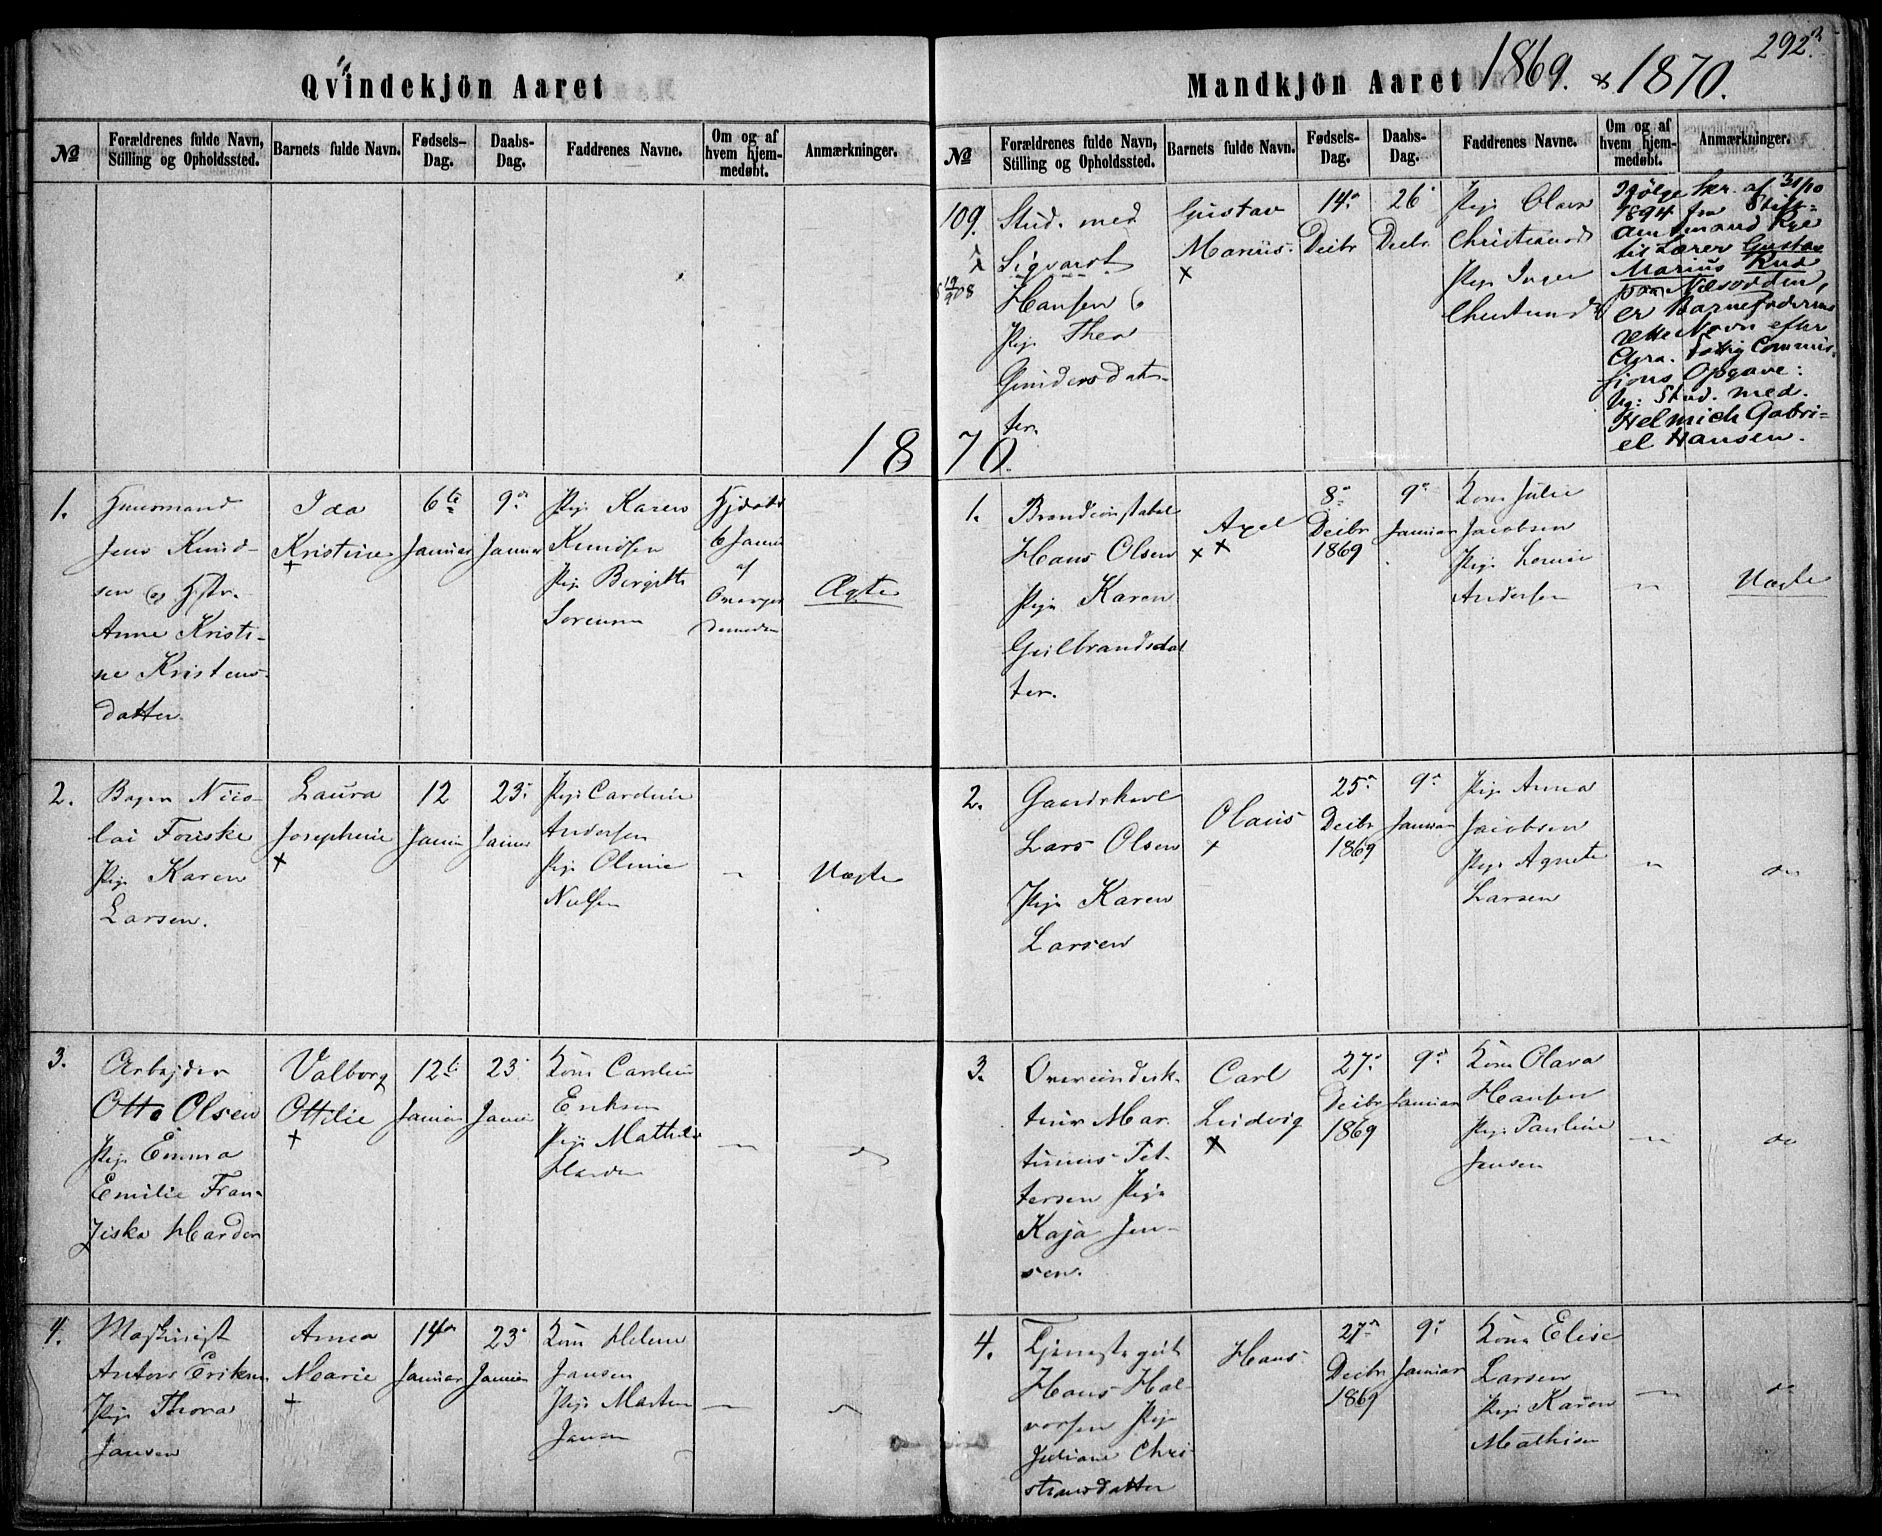 Qvindekjön Aaret
№
Forældrenes fulde Navn, Stilling og Opholdssted.
Barnets fulde Navn.
Fødsels-Dag.
Daabs-Dag.
Faddrenes Navne.
Om og af hvem hjemmedøbt.
Anmærkninger.
18
1.
Jens Knud-
sen og Hstr.
Anne Kristi-
ne Kristens-
datter.
Ida
Kristine
+
6te
Januar
9de
Januar
Pige Karen
Knudsen
Pige Birgitte
Sorensen
Hjdøbt
6 Januar
af
Ægte
2.
Bager Nico-
lai
Pige Karen
Larsen.
Laura
Josephine
+
12
Januar
23.
Januar
Pige Caroline
Andersen
Pige Oline
Nielsen
"
Uægte
3.
Arbejder
Otto Olsen
Pige Emma
Emilie Fran-
ziska Harder
Valborg
Ottilie
+
12te
Januar
23
Januar
Kone Caroline
Eriksen
Pige Mathilde
Harder
"
do
4.
Maskinist
Anton Eriksen
Pige Thora
Jansen
Anna
Marie
+
14de
Januar
23
Januar
Kone Helene
Jansen
Pige
Jansen
"
Mandkjön Aaret 1869. & 1870.
292.
№
Forældrenes fulde Navn, Stilling og Opholdssted.
Barnets fulde Navn.
Fødsels-Dag.
Daabs-Dag.
Faddrenes Navne.
Om og af hvem hjemmedøbt.
Anmærkninger.
109.
Stud. med
Sigvardt
Hansen &
Pige Thea
Gundersdat-
ter.
Gustav
Marius.
+
14.
Decbr
26
Decbr.
Pige Olava
Christiansd
Pige Inger
Ifølge Skr. af 31/10
1894 fra Stift-
amtmand Rye
til Lærer Gustav
Marius Rud
paa Næsodden,
er Barnefaderens
rette Navn efter
Agra. Fattig Commis-
sions Opgave:
Stud. med.
Helmich Gabri-
el Hansen.
70.
1.
Brandconstabel
Hans Olsen
Pige Karen
Gulbrandsdat
ter.
Axel
+ +
8de
Decbr
1869
9de
Januar
Kone Julie
Jacobsen
Pige Louise
Andersen
"
Uægte
2.
Gaardskarl
Lars Olsen
Pige Karen
Larsen
Olaus
+
25de
Decbr
1869
9de
Januar
Pige Anna
Jacobsen
Pige Agnete
Larsen
"
do
3.
Mar-
tinius Pet-
tersen Pige
Kaja Jen-
sen.
Carl
Ludvig
+
27de
Decbr
1869
9de
Januar
Kone Olava
Hansen
Pige Pauline
Jensen
"
do
4.
Tjenestegut
Hans Hal-
vorsen Pige
Juliane Chri
stiansdatter
Hans
27de
Decbr
1869
9de
Januar
Kone Elise
Larsen
Pige Karen
Mathisen
"
do